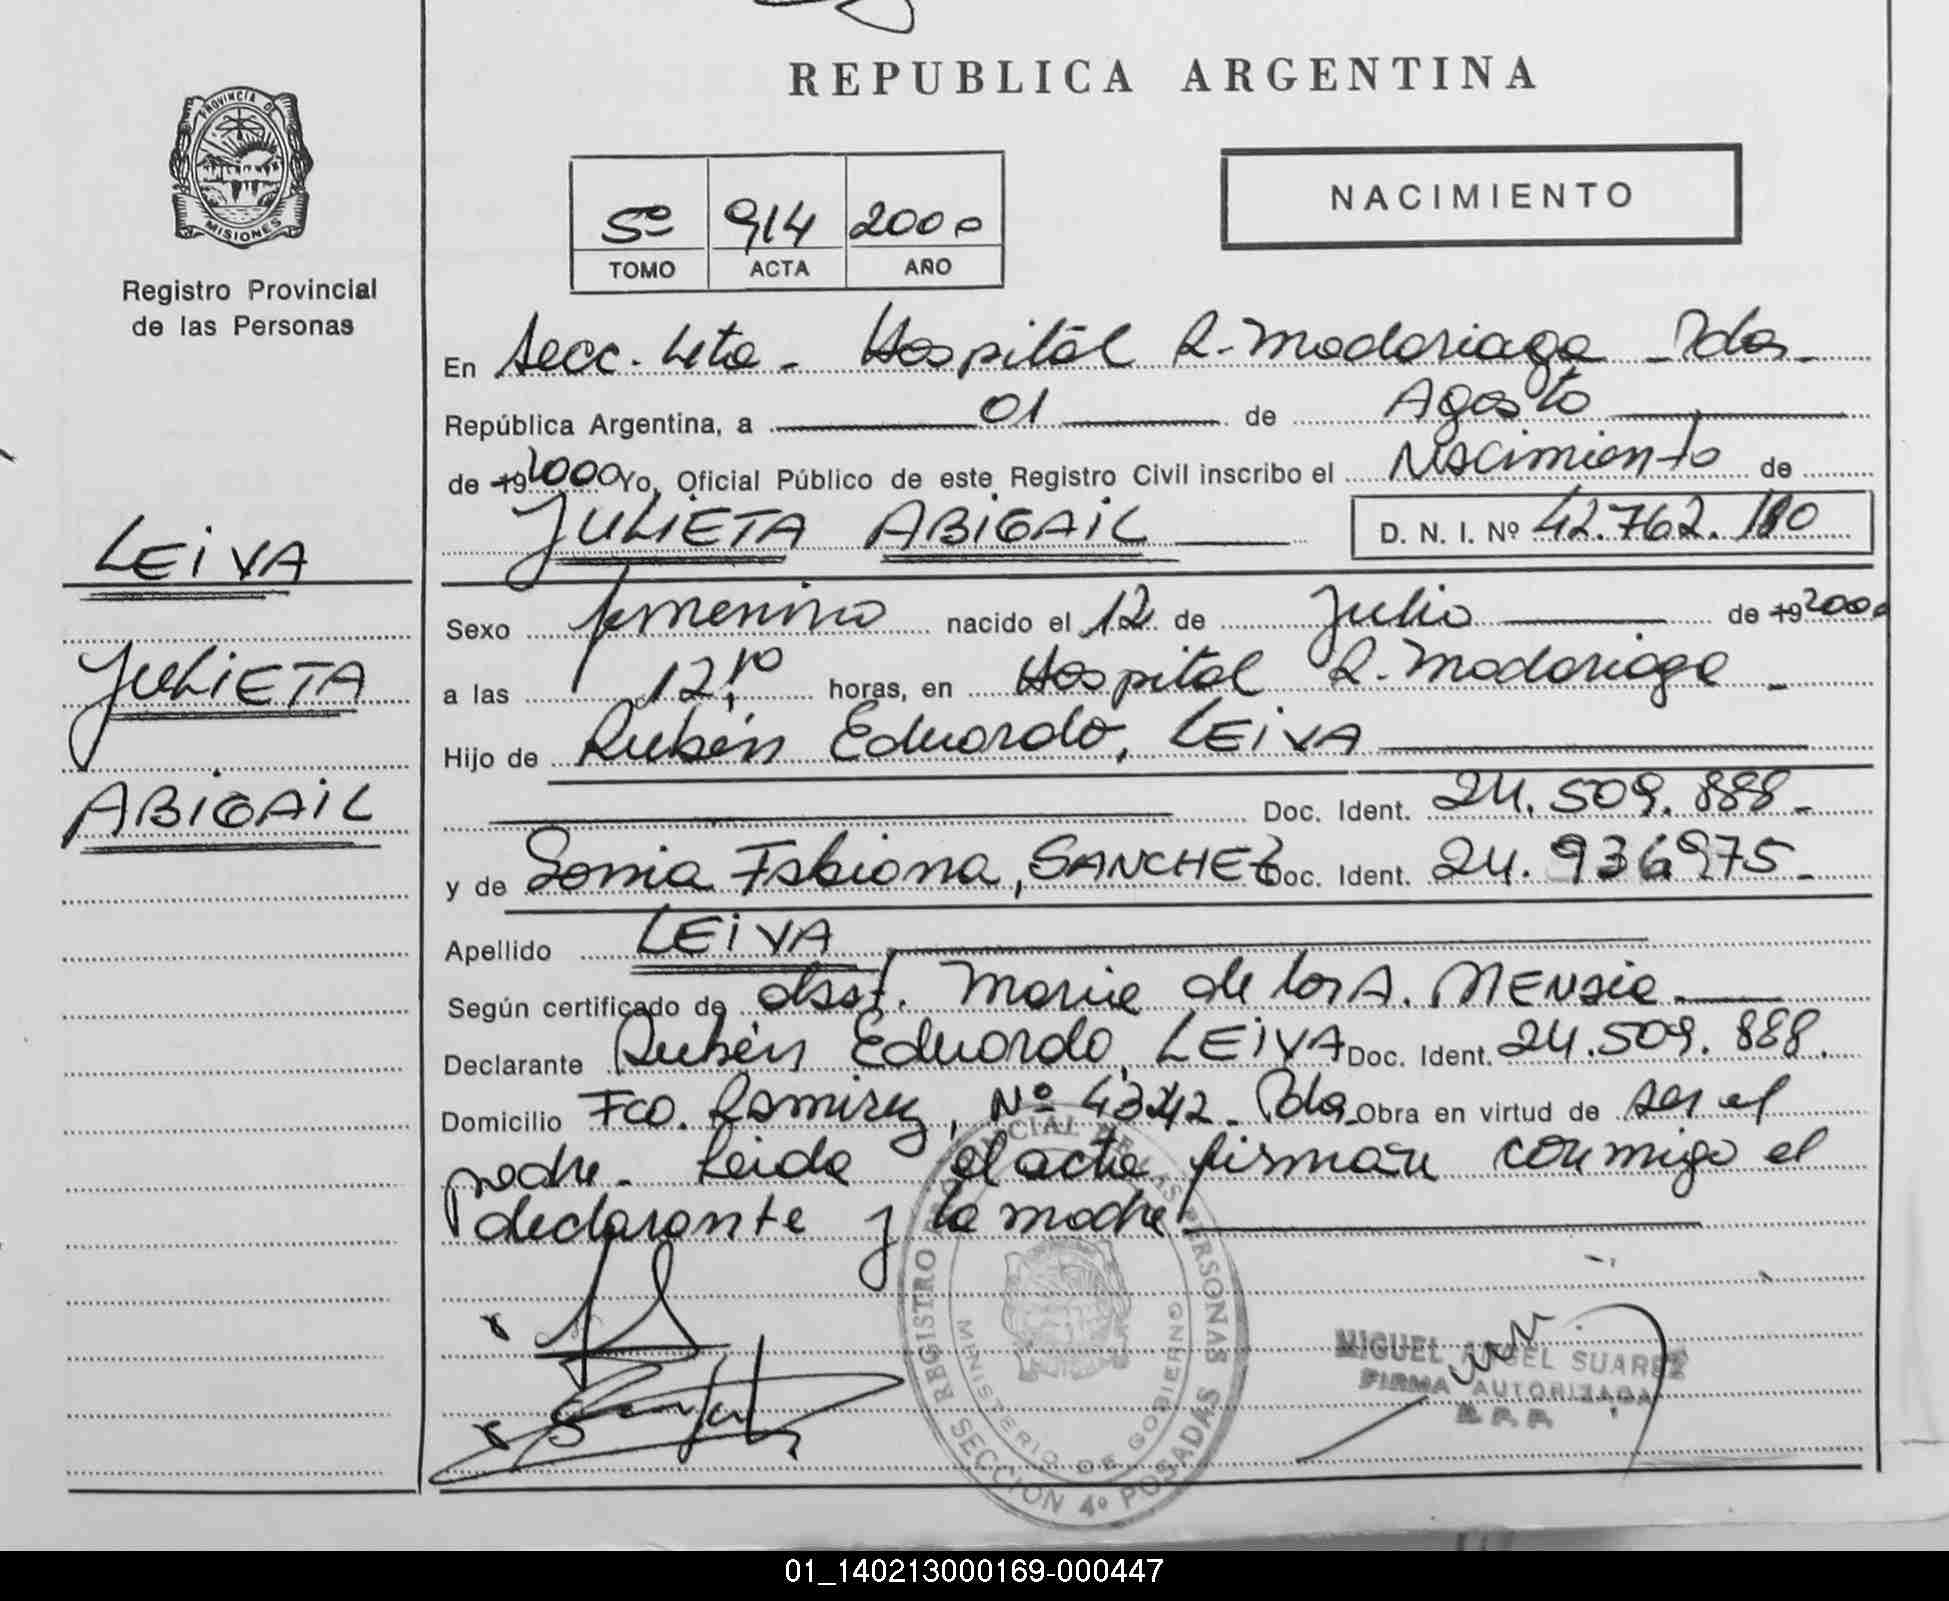 REPUBLICA ARGENTINA
PROVINCIA DE
MISIONES
Registro Provincial
de las Personas
NACIMIENTO
5º 914 2000
TOMO ACTA AÑO
En Secc. 4ta - Hospital R. Madariaga - Pdas -
República Argentina, a 01 de Agosto
de 19 2000 Yo, Oficial Público de este Registro Civil inscribo el Nacimiento de
JULIETA ABIGAIL D. N. I. Nº 42.762.180
LEIVA
JULIETA
ABIGAIL
Sexo femenino nacido el 12 de Julio de 19 2000
a las 12,10 horas, en Hospital R. Madariaga -
Hijo de Rubén Eduardo, LEIVA
Doc. Ident. 24.509.888 -
y de Sonia Fabiana, SANCHEZ Doc. Ident. 24.936975 -
Apellido LEIVA
Según certificado de obst. Maria de los A. MENsia
Declarante Rubén Eduardo, LEIVA Doc. Ident. 24.509.888.
Domicilio Fco. Ramirez, Nº 4342 - Pdas Obra en virtud de ser el
padre. Leida el acta firman conmigo el
declarante y la madre
REGISTRO PROVINCIAL DE LAS PERSONAS
MINISTERIO DE GOBIERNO
SECCION 4º POSADAS
MIGUEL ANGEL SUAREZ
FIRMA AUTORIZADA
R. P. P.
01_140213000169-000447